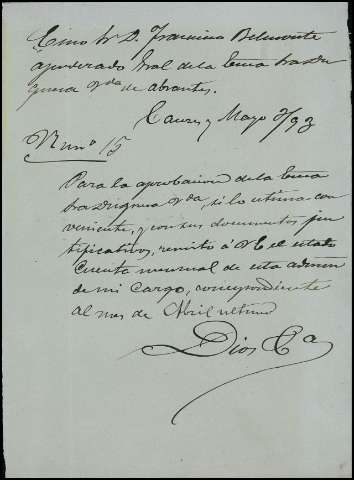 Excmo Sr D. Francisco Belmonte
apoderado Gral de la Exma Sra Du
quesa Vda de Abrantes.
Mayo 2/93
Numº 15
Para la aprobacion de la Exma
Sra Duquesa Vda, si lo estima con
veniente, y con sus documentos jus
tificativos, remito á VE el estado
Cuenta mensual de esta admon
de mi cargo, correspondiente
al mes de Abril ultimo
Dios Ga